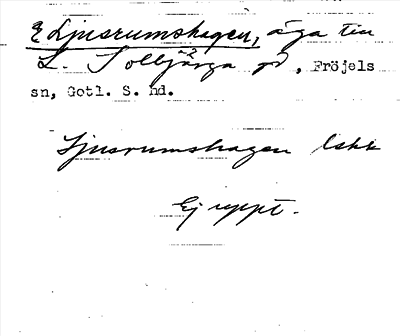 E Ljusrumshagen, äga till
L. Tollbjärga gd, Fröjels
sn, Gotl. S. hd.
Ljusrumshagen lskk
Ej uppt.